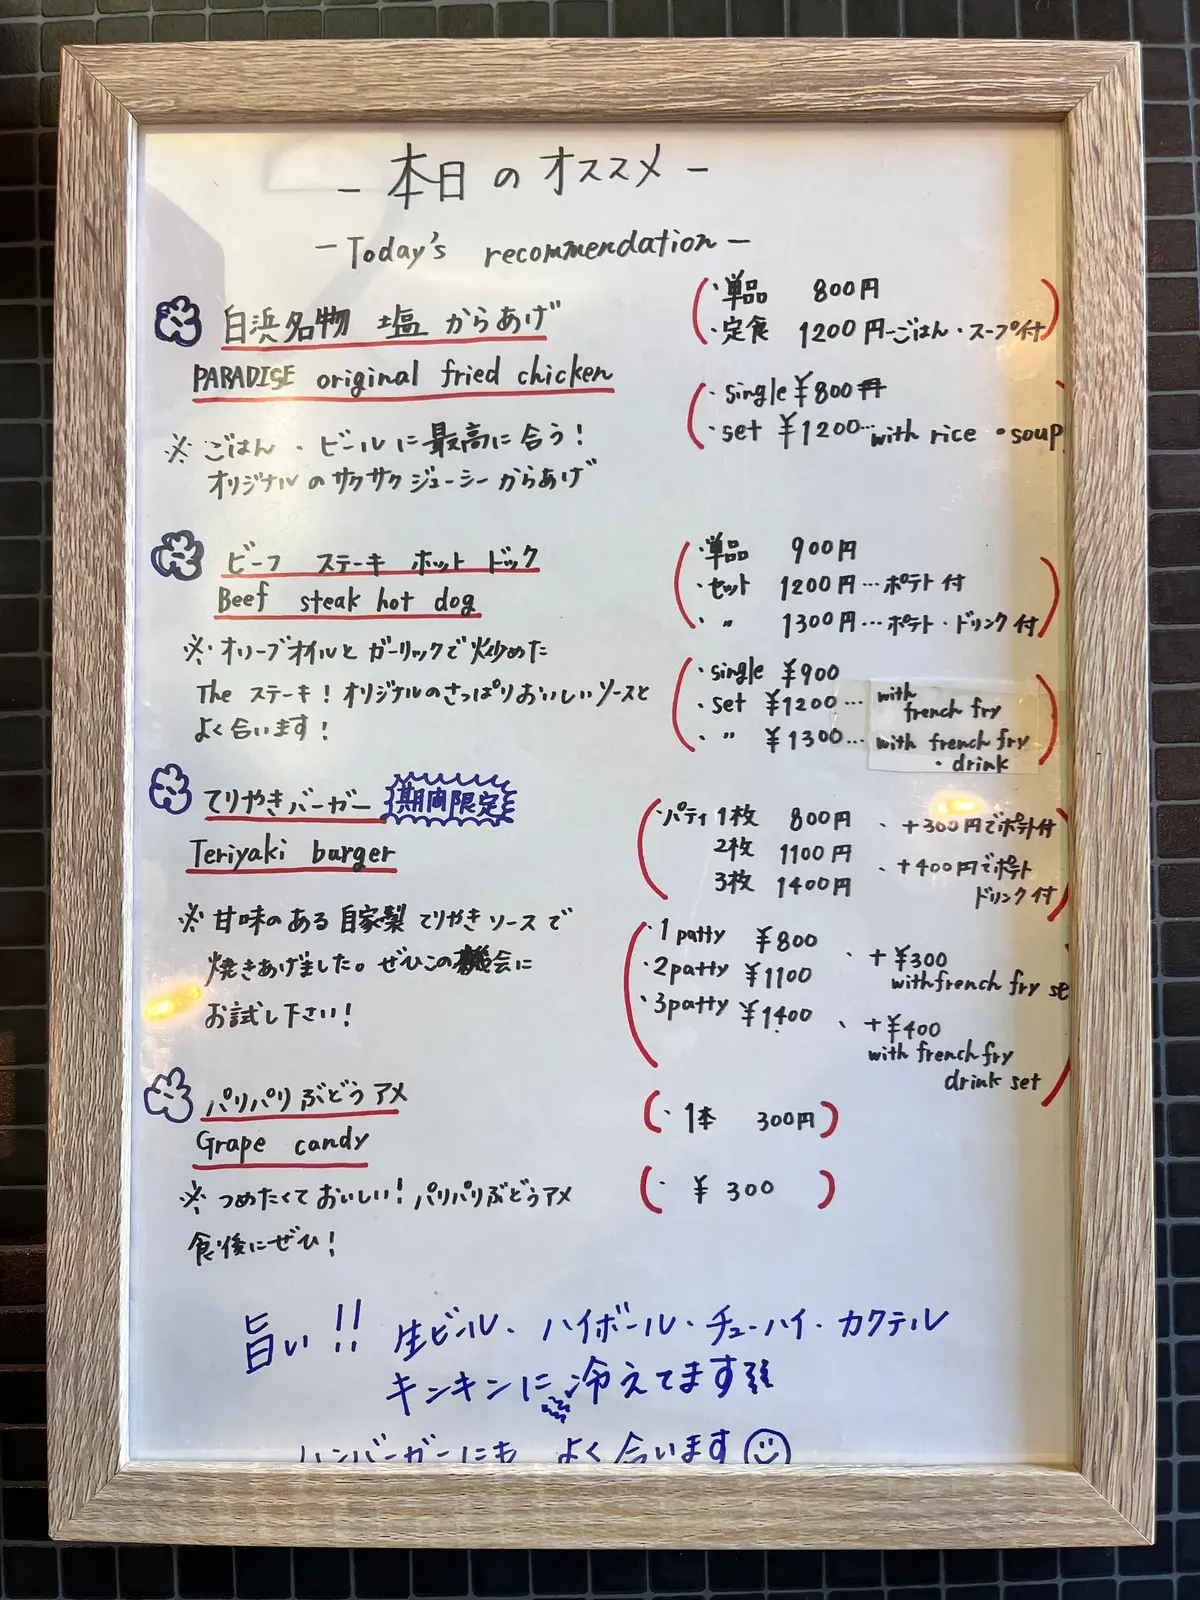 - 本日のオススメ -
- Today's recommendation -
白浜名物 塩 からあげ
PARADISE original fried chicken
※ ごはん・ビールに最高に合う!
オリジナルのサクサクジューシーからあげ
・単品 800円
・定食 1200円…ごはん・スープ付
・single ¥800
・set ¥1200…with rice ・soup
ビーフ ステーキ ホット ドック
Beef steak hot dog
※・オリーブオイルとガーリックで炒めた
The ステーキ!オリジナルのさっぱりおいしいソースと
よく合います!
・単品 900円
・セット 1200円…ポテト付
・ 〃 1300円…ポテト・ドリンク付
・single ¥900
・set ¥1200… with french fry
・ 〃 ¥1300… with french fry
・drink
てりやきバーガー 期間限定
Teriyaki burger
※ 甘味のある自家製てりやきソースで
焼きあげました。ぜひこの機会に
お試し下さい!
・パティ 1枚 800円 、+300円でポテト付
2枚 1100円 、+400円でポテト
3枚 1400円 ドリンク付
・1patty ¥800 、+¥300
・2patty ¥1100 with french fry se
・3patty ¥1400 、+¥400
with french fry
drink set
パリパリぶどうアメ
Grape candy
※ つめたくておいしい!パリパリぶどうアメ
食後にぜひ!
・1本 300円
・¥ 300
旨い!! 生ビール・ハイボール・チューハイ・カクテル
キンキンに冷えてます
ハンバーガーにも よく合います